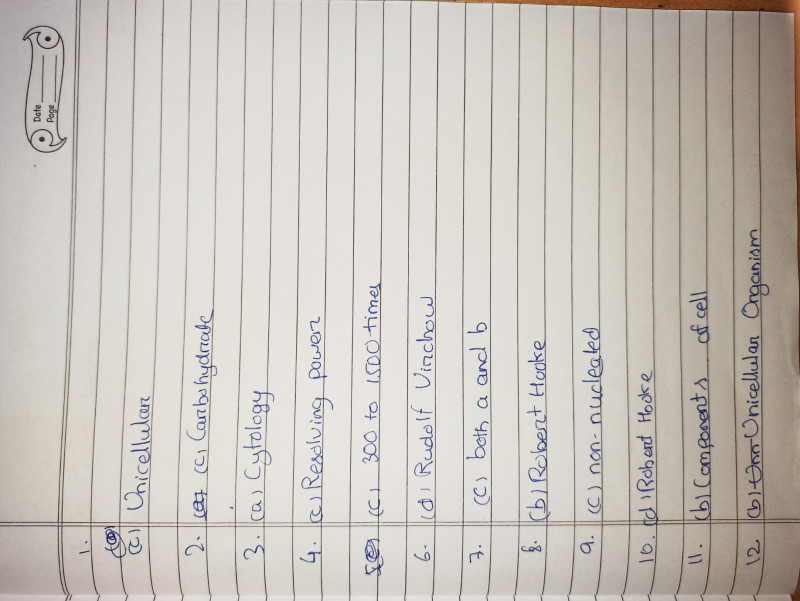 Date
Page
1.
(c) Unicellular
2. (c) Carbohydrate
3. (a) Cytology
4. (c) Resolving power
5. (c) 300 to 1500 times
6. (d) Rudolf Virchow
7. (c) both a and b
8. (b) Robert Hooke
9. (c) non-nucleated
10. (d) Robert Hooke
11. (b) Components of cell
12. (b) Unicellular Organism